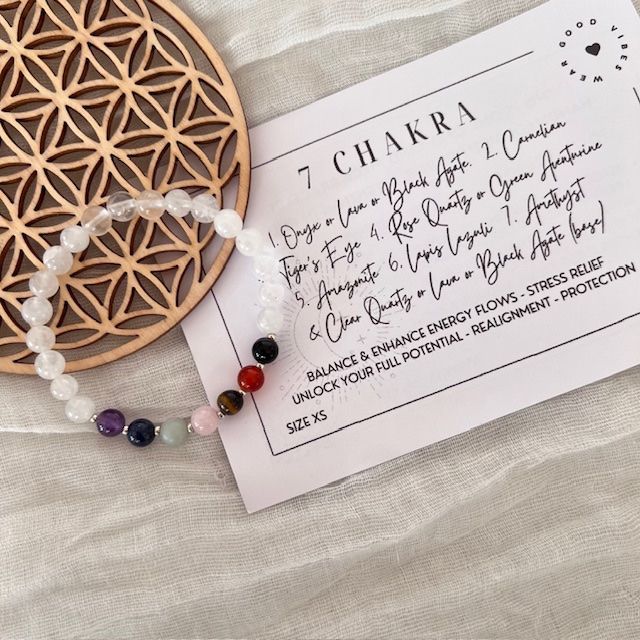 WEAR GOOD VIBES
7 CHAKRA
1. Onyx or Lava or Black Agate. 2. Carnelian
Tiger's Eye 4. Rose Quartz or Green Aventurine
5. Amazonite 6. Lapis Lazuli 7. Amethyst
& Clear Quartz or Lava or Black Agate (base)
BALANCE & ENHANCE ENERGY FLOWS - STRESS RELIEF
UNLOCK YOUR FULL POTENTIAL - REALIGNMENT - PROTECTION
SIZE XS